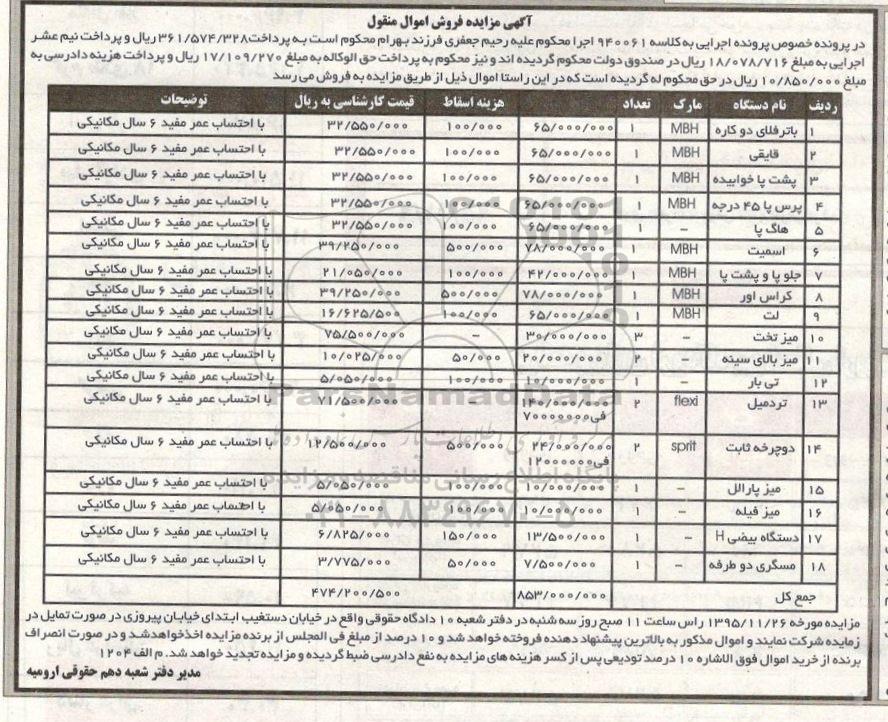 آگهی مزایده فروش اموال منقول
در پرونده خصوص پرونده اجرایی به کلاسه ۹۴۰۰۶۱ اجرا محکوم علیه رحیم جعفری فرزند بهرام محکوم است به پرداخت ۳۶۱/۵۷۴/۳۲۸ ریال و پرداخت نیم عشر
اجرایی به مبلغ ۱۸/۰۷۸/۷۱۶ ریال در صندوق دولت محکوم گردیده اند و نیز محکوم به پرداخت حق الوکاله به مبلغ ۱۷/۱۰۹/۲۷۰ ریال و پرداخت هزینه دادرسی به
مبلغ ۱۰/۸۵۰/۰۰۰ ریال در حق محکوم له گردیده است که در این راستا اموال ذیل از طریق مزایده به فروش می رسد
ردیف نام دستگاه مارک تعداد هزینه اسقاط قیمت کارشناسی به ریال توضیحات
۱ باتر فلای دو کاره MBH ۱ ۶۵/۰۰۰/۰۰۰ ۱۰۰/۰۰۰ ۳۲/۵۵۰/۰۰۰ با احتساب عمر مفید ۶ سال مکانیکی
۲ قایقی MBH ۱ ۶۵/۰۰۰/۰۰۰ ۱۰۰/۰۰۰ ۳۲/۵۵۰/۰۰۰ با احتساب عمر مفید ۶ سال مکانیکی
۳ پشت پا خوابیده MBH ۱ ۶۵/۰۰۰/۰۰۰ ۱۰۰/۰۰۰ ۳۲/۵۵۰/۰۰۰ با احتساب عمر مفید ۶ سال مکانیکی
۴ پرس پا ۴۵ درجه MBH ۱ ۶۵/۰۰۰/۰۰۰ ۱۰۰/۰۰۰ ۳۲/۵۵۰/۰۰۰ با احتساب عمر مفید ۶ سال مکانیکی
۵ هاگ پا - ۱ ۶۵/۰۰۰/۰۰۰ ۱۰۰/۰۰۰ ۳۲/۵۵۰/۰۰۰ با احتساب عمر مفید ۶ سال مکانیکی
۶ اسمیت MBH ۱ ۷۸/۰۰۰/۰۰۰ ۵۰۰/۰۰۰ ۳۹/۲۵۰/۰۰۰ با احتساب عمر مفید ۶ سال مکانیکی
۷ جلو پا و پشت پا MBH ۱ ۴۲/۰۰۰/۰۰۰ ۱۰۰/۰۰۰ ۲۱/۰۵۰/۰۰۰ با احتساب عمر مفید ۶ سال مکانیکی
۸ کراس اور MBH ۱ ۷۸/۰۰۰/۰۰۰ ۵۰۰/۰۰۰ ۳۹/۲۵۰/۰۰۰ با احتساب عمر مفید ۶ سال مکانیکی
۹ لت MBH ۱ ۶۵/۰۰۰/۰۰۰ ۱۰۰/۰۰۰ ۱۶/۶۲۵/۵۰۰ با احتساب عمر مفید ۶ سال مکانیکی
۱۰ میز تخت - ۳ ۳۰/۰۰۰/۰۰۰ - ۷۵/۵۰۰/۰۰۰ با احتساب عمر مفید ۶ سال مکانیکی
۱۱ میز بالای سینه - ۲ ۲۰/۰۰۰/۰۰۰ ۵۰/۰۰۰ ۱۰/۰۲۵/۰۰۰ با احتساب عمر مفید ۶ سال مکانیکی
۱۲ تی بار - ۱ ۱۰/۰۰۰/۰۰۰ ۱۰۰/۰۰۰ ۵/۰۵۰/۰۰۰ با احتساب عمر مفید ۶ سال مکانیکی
۱۳ تردمیل flexi ۲ ۱۴۰/۰۰۰/۰۰۰ - ۷۱/۵۰۰/۰۰۰ با احتساب عمر مفید ۶ سال مکانیکی
فی ۷۰۰۰۰۰۰۰
۱۴ دوچرخه ثابت sprit ۲ ۲۴/۰۰۰/۰۰۰ ۵۰۰/۰۰۰ ۱۲/۵۰۰/۰۰۰ با احتساب عمر مفید ۶ سال مکانیکی
فی ۱۲۰۰۰۰۰۰
۱۵ میز پارالل - ۱ ۱۰/۰۰۰/۰۰۰ ۱۰۰/۰۰۰ ۵/۰۵۰/۰۰۰ با احتساب عمر مفید ۶ سال مکانیکی
۱۶ میز فیله - ۱ ۱۰/۰۰۰/۰۰۰ ۱۰۰/۰۰۰ ۵/۰۵۰/۰۰۰ با احتساب عمر مفید ۶ سال مکانیکی
۱۷ دستگاه بیضی H - ۱ ۱۳/۵۰۰/۰۰۰ ۱۵۰/۰۰۰ ۶/۸۲۵/۰۰۰ با احتساب عمر مفید ۶ سال مکانیکی
۱۸ مسگری دو طرفه - ۱ ۷/۵۰۰/۰۰۰ ۵۰/۰۰۰ ۳/۷۷۵/۰۰۰ با احتساب عمر مفید ۶ سال مکانیکی
جمع کل ۸۵۳/۰۰۰/۰۰۰ ۴۷۴/۲۰۰/۵۰۰
مزایده مورخه ۱۳۹۵/۱۱/۲۶ راس ساعت ۱۱ صبح روز سه شنبه در دفتر شعبه ۱۰ دادگاه حقوقی واقع در خیابان دستغیب ابتدای خیابان پیروزی در صورت تمایل در
زمایده شرکت نمایند و اموال مذکور به بالاترین پیشنهاد دهنده فروخته خواهد شد و ۱۰ درصد از مبلغ فی المجلس از برنده مزایده اخذ خواهد شد و در صورت انصراف
برنده از خرید اموال فوق الاشاره ۱۰ درصد تودیعی پس از کسر هزینه های مزایده به نفع دادرسی ضبط گردیده و مزایده تجدید خواهد شد. م الف ۱۲۰۴
مدیر دفتر شعبه دهم حقوقی ارومیه
پایگاه اطلاع رسانی مناقصه و مزایده
۰۲۱-۸۸۳۴۹۶۷۰-۵